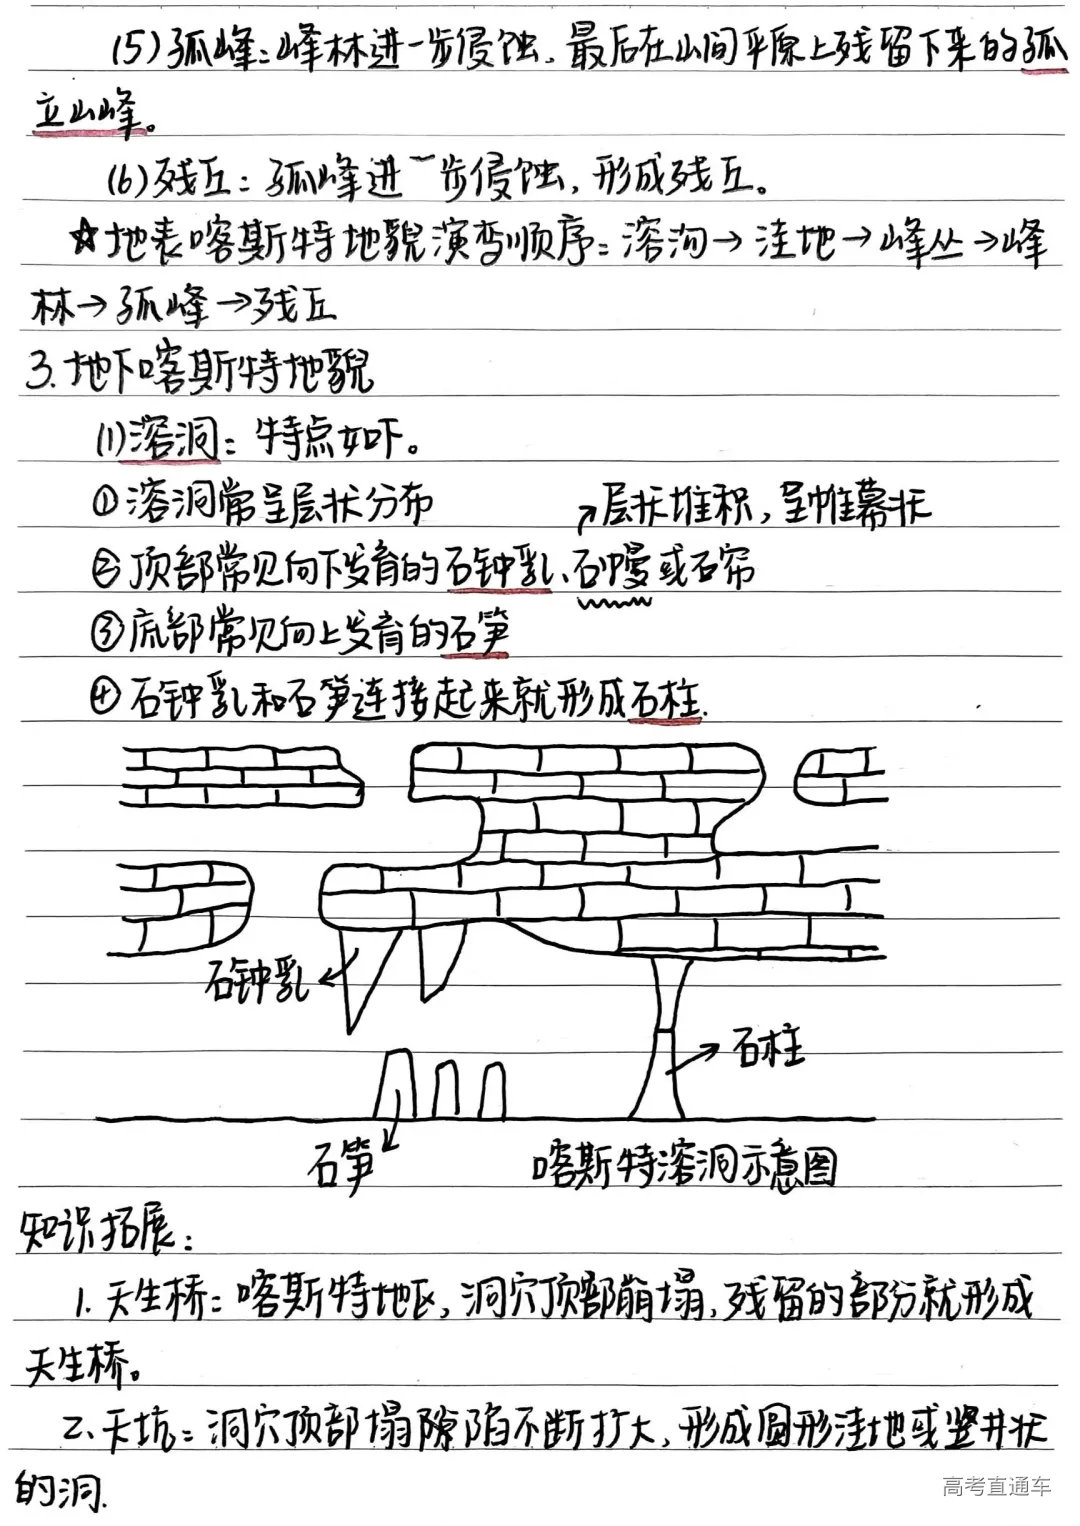 (5)孤峰:峰林进一步侵蚀,最后在山间平原上残留下来的孤
立山峰。
(6)残丘:孤峰进一步侵蚀,形成残丘。
☆地表喀斯特地貌演变顺序:溶沟→洼地→峰丛→峰
林→孤峰→残丘
3.地下喀斯特地貌
(1)溶洞:特点如下。
①溶洞常呈层状分布
↗层状堆积,呈帷幕状
②顶部常见向下发育的石钟乳、石幔或石帘
③底部常见向上发育的石笋
④石钟乳和石笋连接起来就形成石柱.
石钟乳
石柱
石笋
喀斯特溶洞示意图
知识拓展:
1.天生桥:喀斯特地区,洞穴顶部崩塌,残留的部分就形成
天生桥。
2.天坑:洞穴顶部塌陷不断扩大,形成圆形洼地或竖井状
的洞.
高考直通车